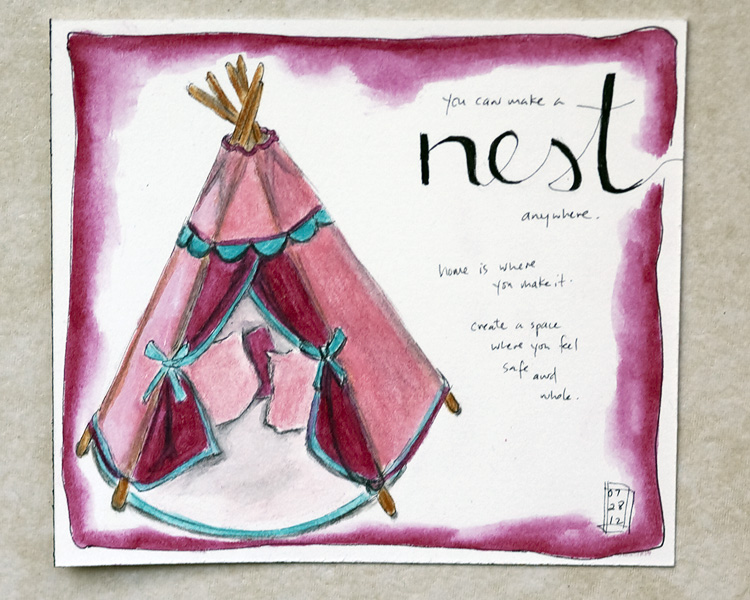 you can make a
nest
anywhere.
home is where
you make it.
create a space
where you feel
safe and
whole.
07
28
12